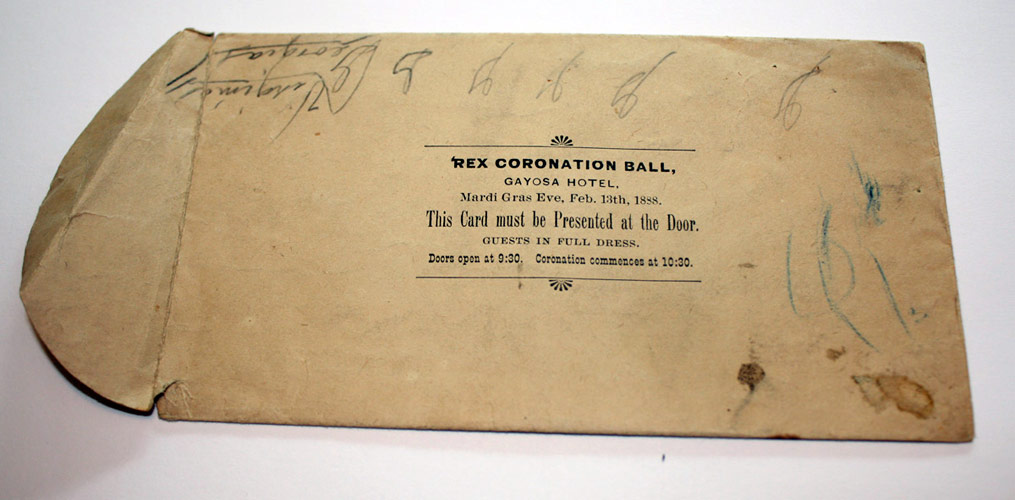 REX CORONATION BALL,
GAYOSA HOTEL,
Mardi Gras Eve, Feb. 13th, 1888.
This Card must be Presented at the Door.
GUESTS IN FULL DRESS.
Doors open at 9:30. Coronation commences at 10:30.
Georgias